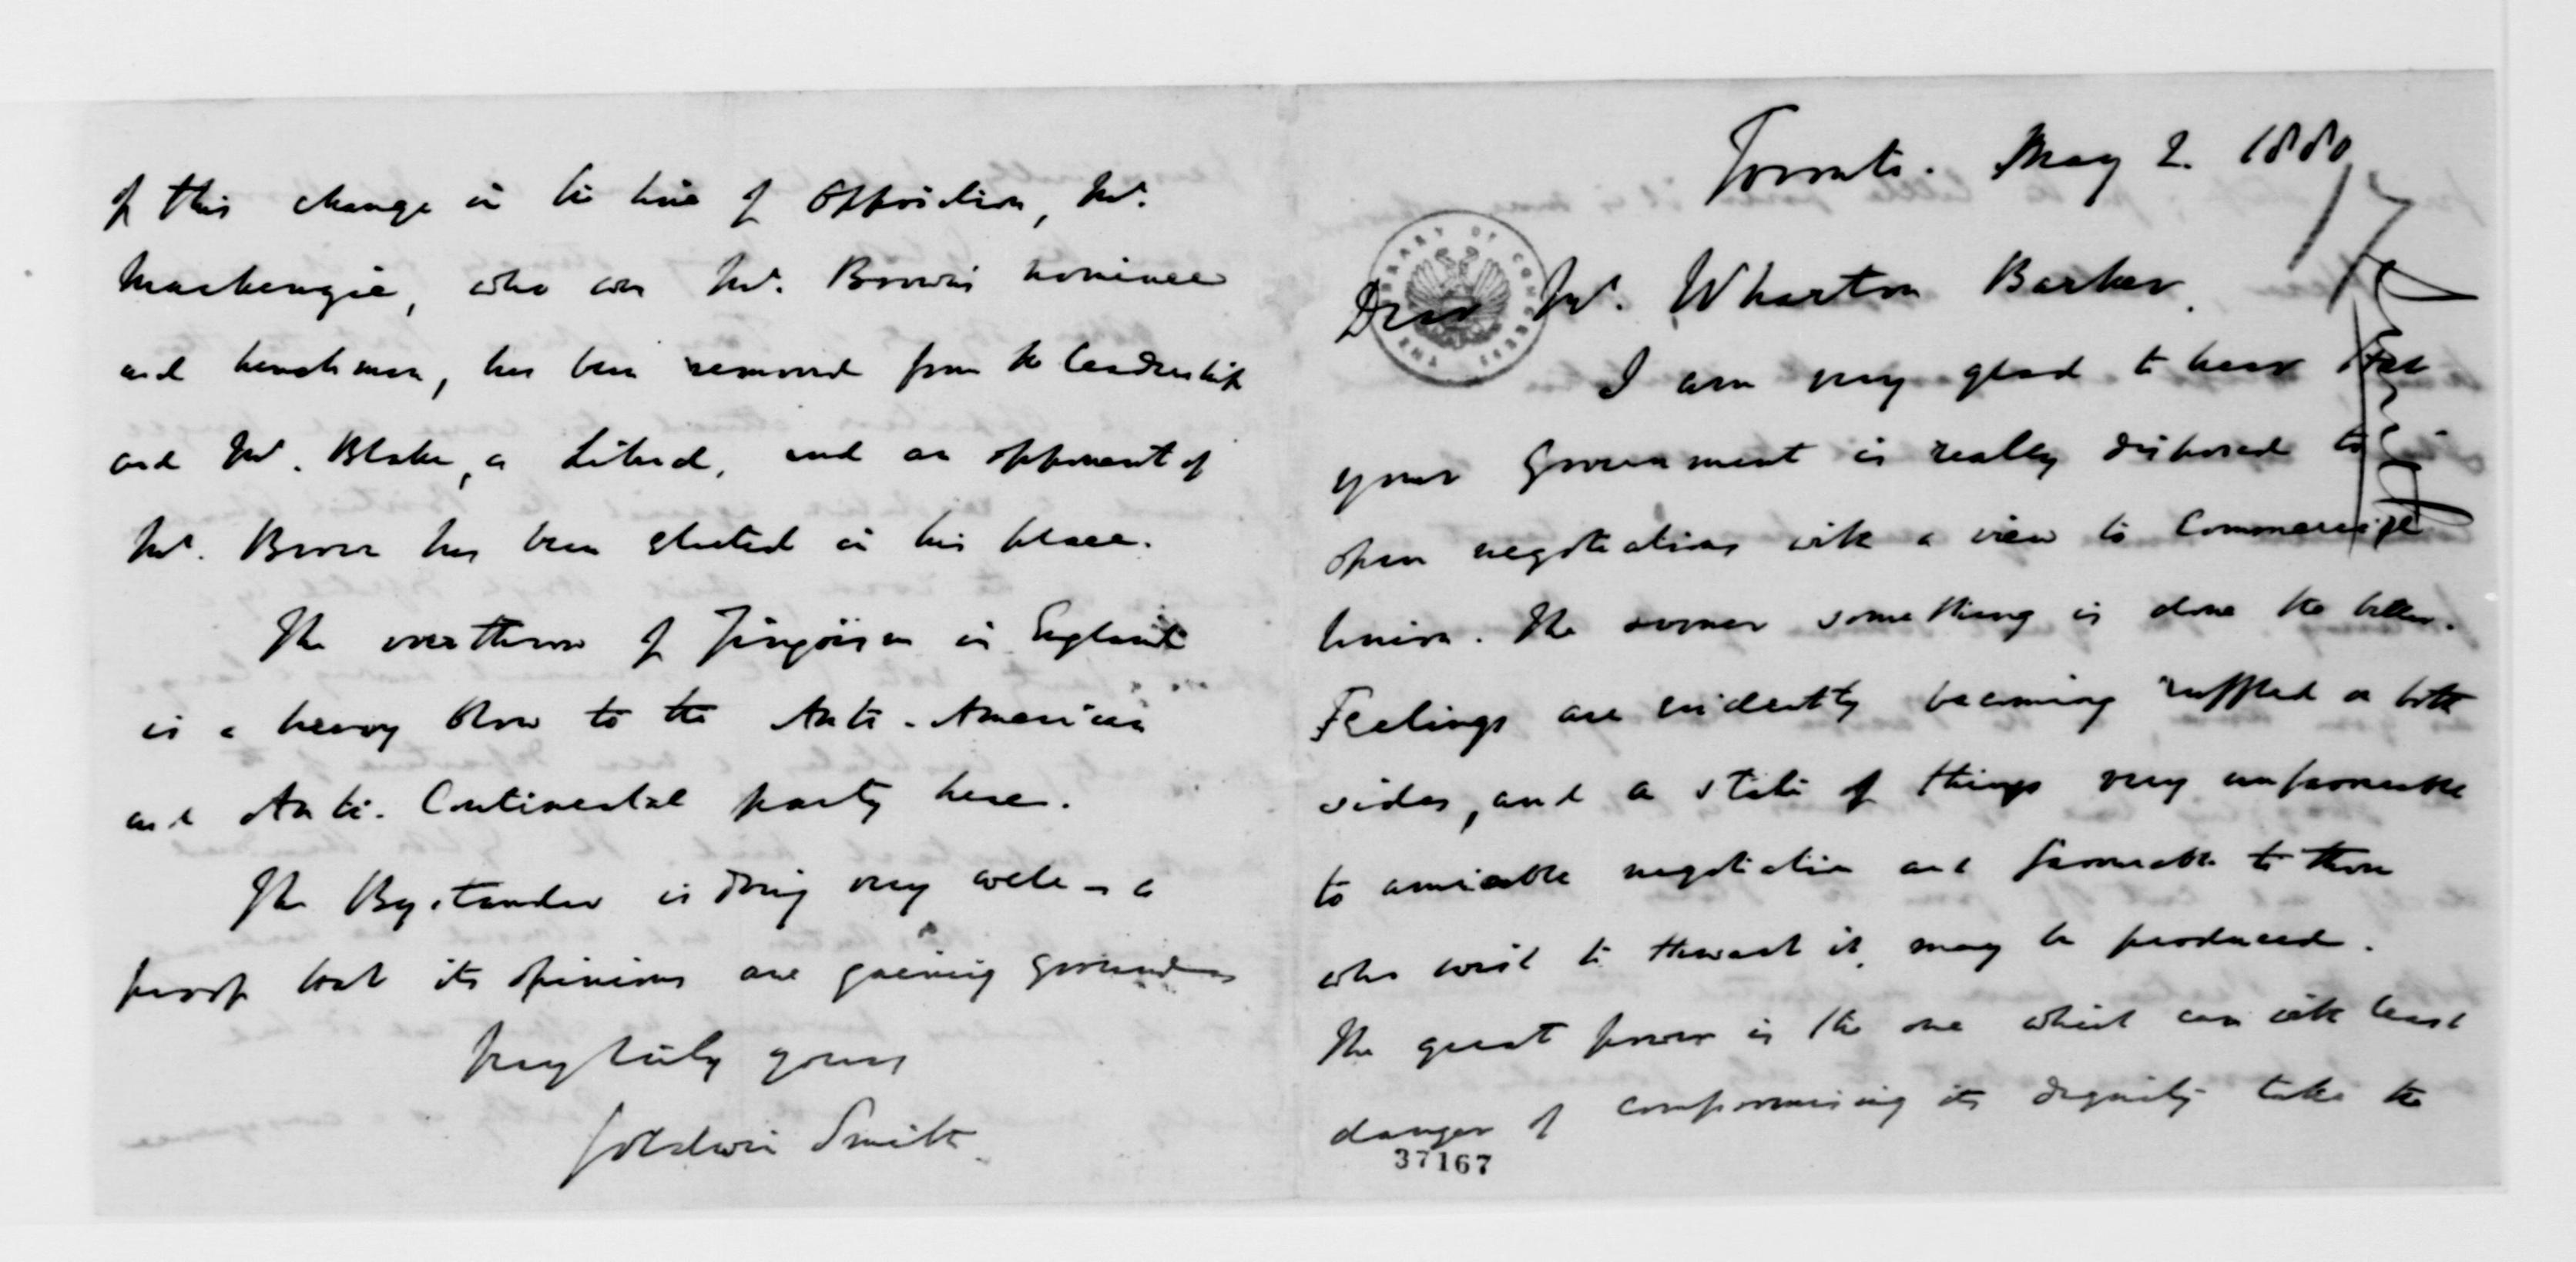 Toronto. May 2. 1880
Dear Mr. Wharton Barker.
I am very glad to hear that
your Government is really disposed to
open negotiations with a view to Commercial
Union. The sooner something is done the better.
Feelings are evidently becoming ruffled on both
sides, and a state of things very unfavourable
to amicable negotiation and favourable to those
who wish to thwart it, may be produced.
The great power is the one which can with least
danger of compromising its dignity take the
37167
of this change in the line of Opposition, Mr.
Mackenzie, who was Mr. Brown's nominee
and henchman, has been removed from the leadership
and Mr. Blake, a Liberal, and an opponent of
Mr. Brown has been elected in his place.
The overthrow of Jingoism in England
is a heavy blow to the Anti-American
and Anti-Continental party here.
The Bystander is doing very well - a
proof that its opinions are gaining ground
Very truly yours
Goldwin Smith.
LIBRARY OF CONGRESS